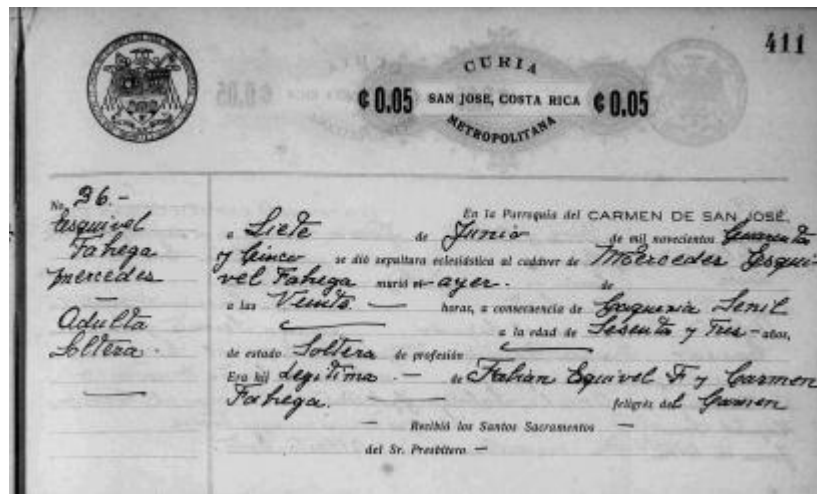 411
CURIA
₡ 0.05 SAN JOSE, COSTA RICA ₡ 0.05
METROPOLITANA
No. 36.-
Esquivel
Fabrega
Mercedes
—
Adulta
Soltera.
—
En la Parroquia del CARMEN DE SAN JOSÉ,
a Siete de Junio de mil novecientos Cuarenta
y Cinco se dió sepultura eclesiástica al cadáver de Mercedes Esqui-
vel Fabrega murió el ayer. - de
a las Veinte. — horas, a consecuencia de Senil
a la edad de Sesenta y Tres - años,
de estado Soltera de profesión
Era hij Legitima. - de Fabian Equivel F. y Carmen
Fabrega. — feligrés del Carmen
— Recibió los Santos Sacramentos —
del Sr. Presbítero —